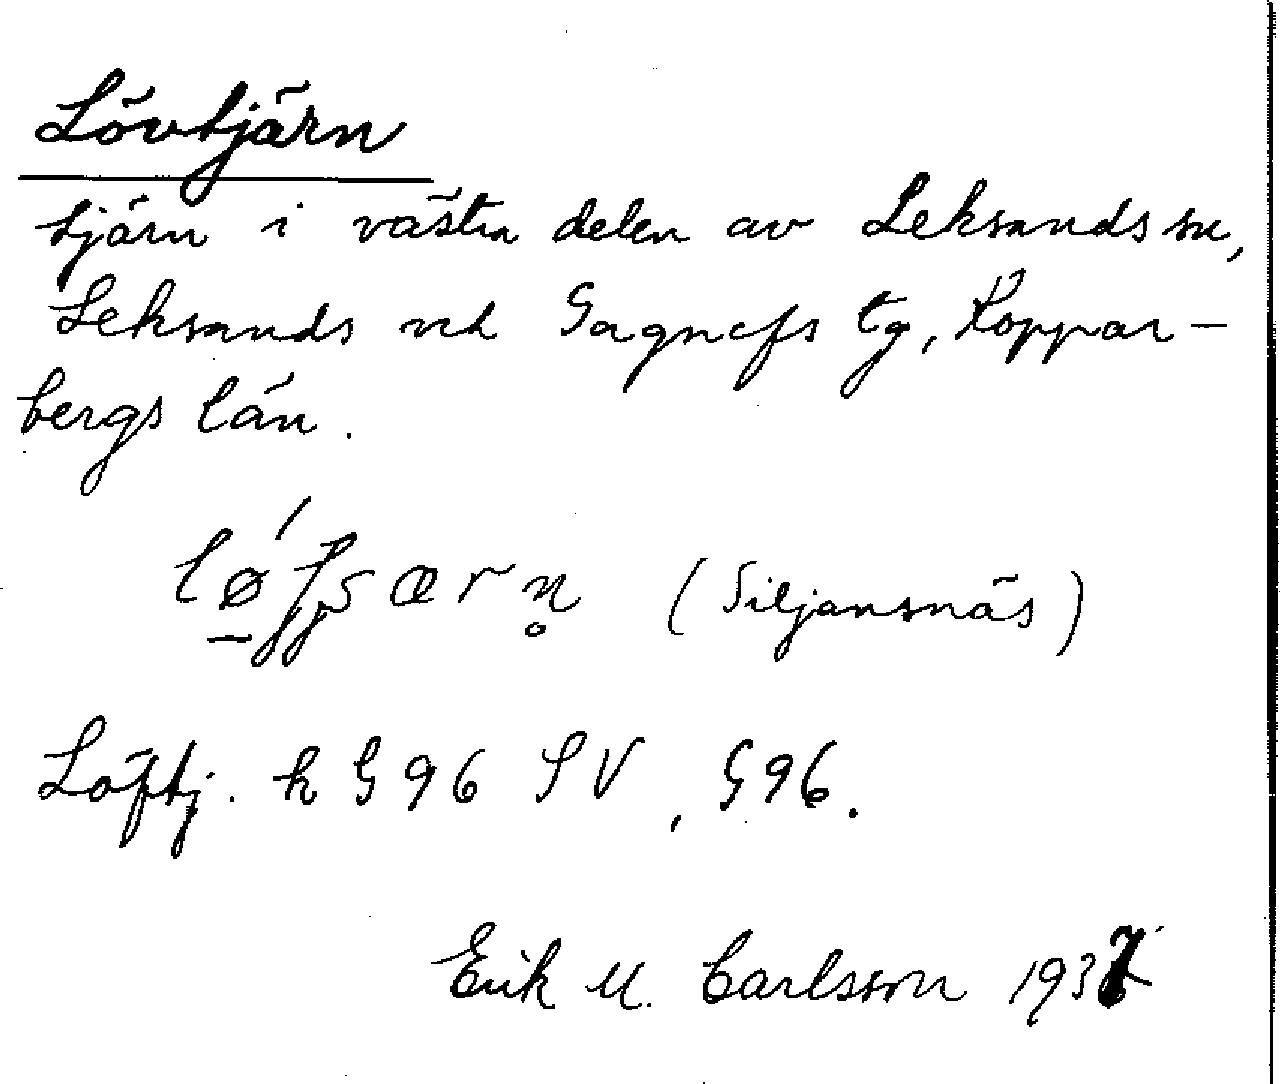 Lövtjärn
tjärn i västra delen av Leksands sn,
Leksands och Gagnefs tg, Koppar-
bergs län.
(Siljansnäs)
Löftj. k G 96 SV, G 96.
Erik M. Carlsson 1937